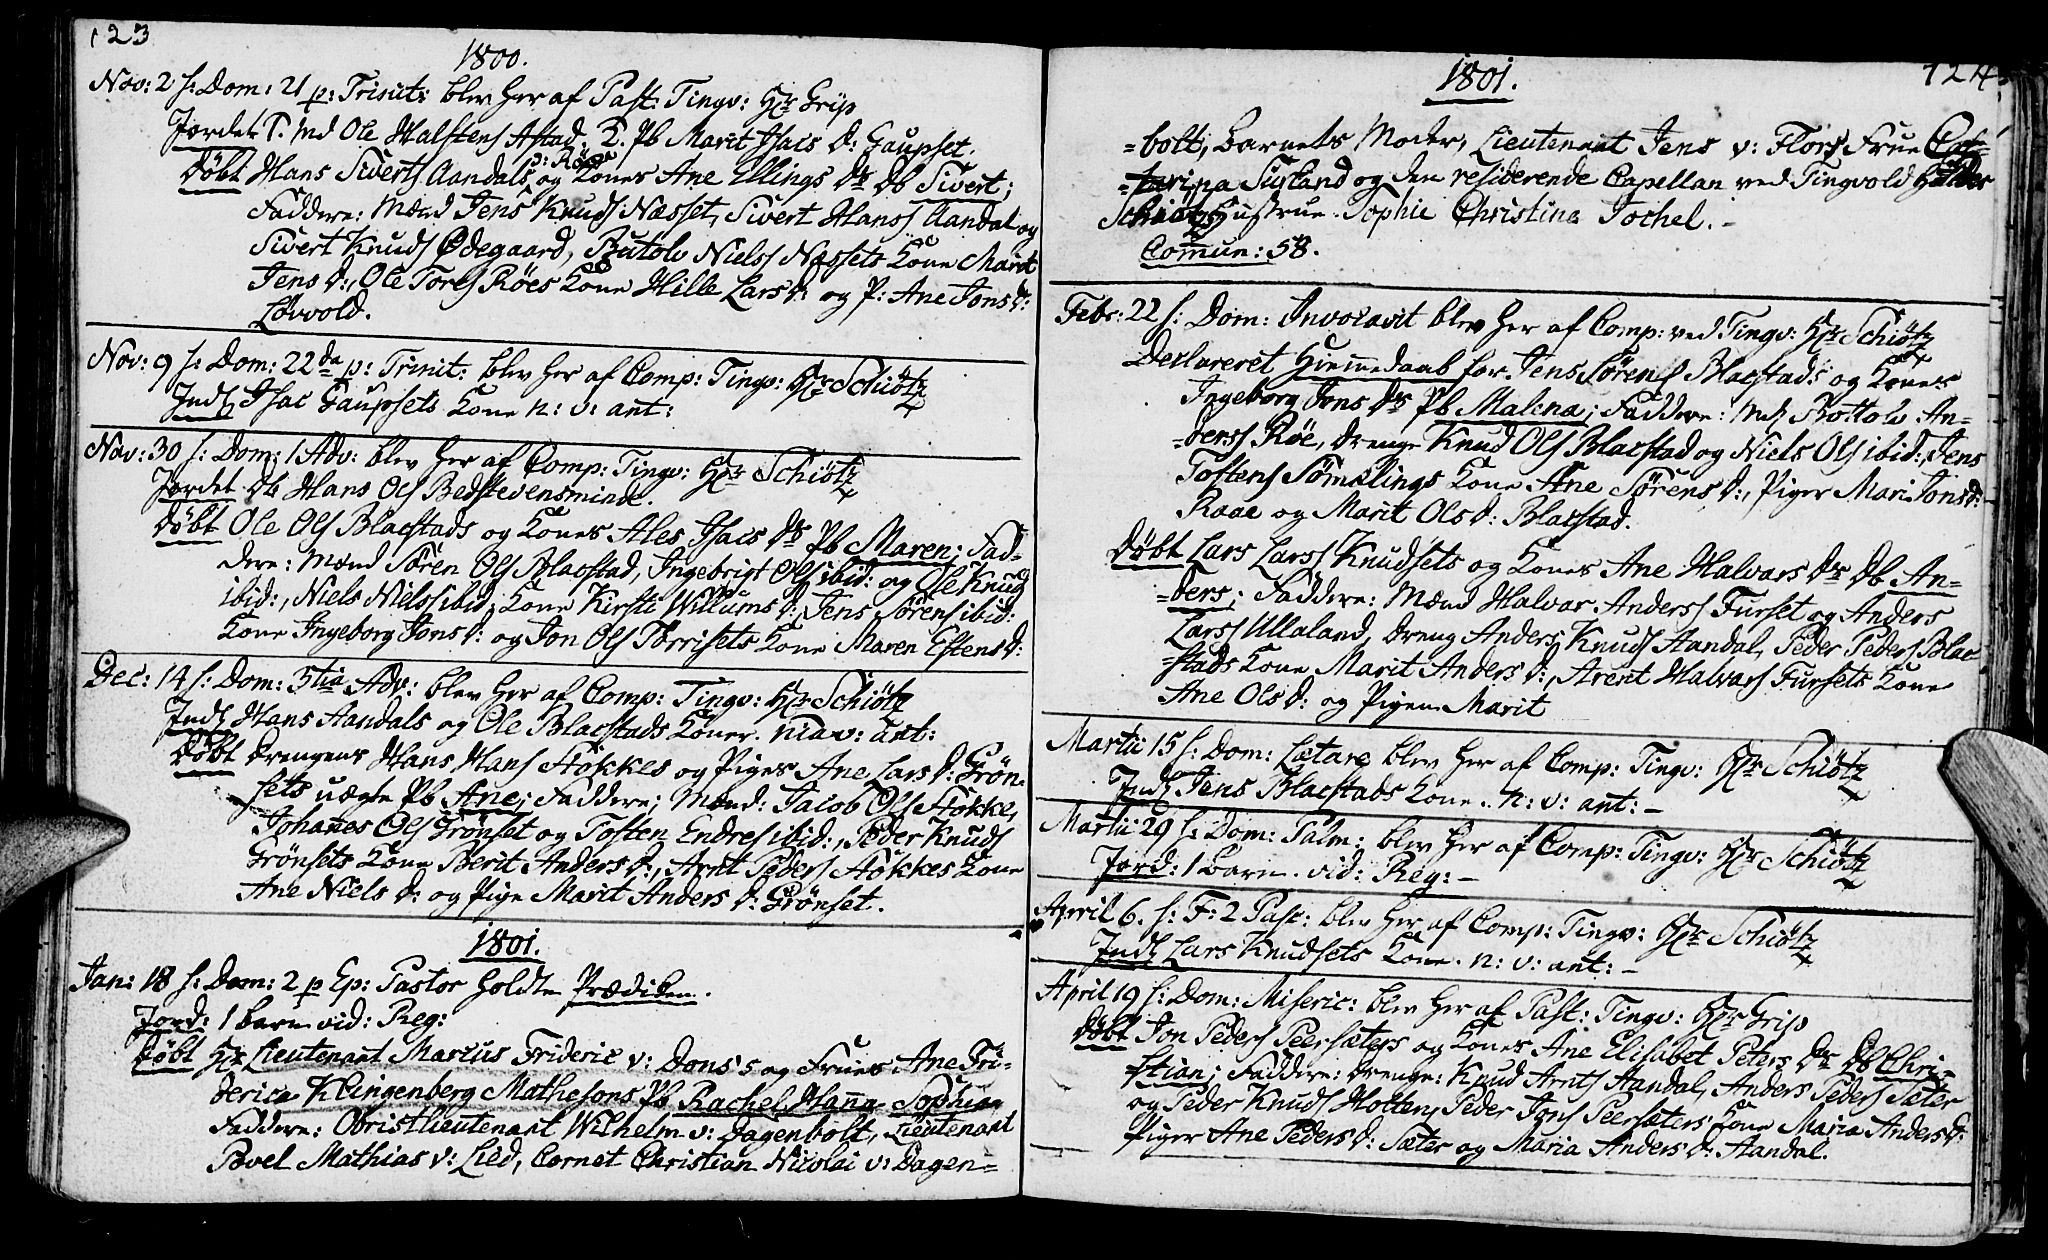 123
1800.
Nov: 2 s: Dom: 21 p: Trinit: blev her af Past: Tingv: Hr Grip
Jordet S. Md Ole Halstens Astad. D. Pb Marit Isacs D: Gaupset.
Döbt Hans Siverts Aandals og Kones Ane Ellings Dr Db Sivert;
Faddere: Mænd Jens Knuds Næsset, Sivert Hanss Aandal og
Sivert Knuds Ødegaard, Butolv Nielss Næssets Kone Marit
Jens D:, Ole Tores Röes Kone Hille Lars D: og P: Ane Jons D:
Løvvold.
Nov: 9 s: Dom: 22da p: Trinit: blev her af Comp: Tingv: Hr Schiötz
Indl Isac Gaupsets Kone n: v: ant:
Nov: 30 s: Dom: 1 Adv: blev her af Comp: Tingv: Hr Schiötz
Jordet Db Hans Ols Bedstevensminde
Döbt Ole Ols Blacstads og Kones Ales Isacs Dr Pb Maren; Fad-
dere: Mænd Sören Ols Blacstad, Ingebrigt Ols ibid: og Ole Knuds
ibid:, Niels Nielss ibid: Kone Kirsti Willums D:, Jens Sörens ibid:
Kone Ingeborg Jons D: og Jon Ols Torrisets Kone Maren Estens D:
Dec: 14 s: Dom: 3tia Adv: blev her af Comp: Tingv: Hr Schiötz
Indl Hans Aandals og Ole Blacstads Koner. n: v: ant:
Döbt Drengens Hans Hans Stökkes og Piges Ane Lars D: Grön-
sets uægte Pb Ane; Faddere; Mænd: Jacob Ols Stökke,
Johanes Ols Grönset og Tosten Endres ibid:, Peder Knuds
Grönsets Kone Berit Anders D:, Arnt Peders Stökkes Kone
Ane Niels D: og Pige Marit Anders D: Grönset.
1801.
Jan: 18 s: Dom: 2 p Ep: Pastor holdte Prædiken.
Jord: 1 barn vid: Reg:
Döbt Hr Lieutenant Marcus Frideric v: Dons's og Frues Ane Fri-
derica Klingenberg Mathesons Pb Rachel Hanna Sophia
Faddere: Obristlieutenant Wilhelm v: Dagenbolt, Lieutenant
Povel Mathias v: Lied, Cornet Christian Nicolai v: Dagen-
1801.
124
-bolt, Barnets Moder, Lieutenant Jens v: Flors Frue Cat-
-tarina Susland og den residerende Capellan ved Tingvold
Schiötz Hustrue Sophie Christina Tochel.-
Commun: 58.
Febr: 22 s: Dom: Invocavit blev her af Comp: ved Tingv: Hr Schiötz
Declareret Hiemmedaab for Jens Sörens Blacstads og Kones
Ingeborg Jons Dr Pb Malena; Faddere: Md Bottolv An-
-derss Röe, Drenge Knud Ols Blacstad og Niels Ols ibid:, Jens
Tostens Sömelings Kone Ane Sörens D:, Piger Mari Jons D:
Raae og Marit Ols D: Blacstad.
Döbt Lars Larss Knudsets og Kones Ane Halvars Dr Db An-
-ders; Faddere: Mænd Halvar Anderss Furset og Anders
Larss Ullaland, Dreng Anders Knuds Aandal, Peder Peders Blac-
-stads Kone Marit Anders D:, Arent Halvars Fursets Kone
Ane Ols D: og Pigen Marit
Martii 15 s: Dom: Lætare blev her af Comp: Tingv: Hr Schiötz
Indl Jens Blacstads Kone. n: v: ant: -
Martii 29 s: Dom: Palm: blev her af Comp: Tingv: Hr Schiötz
Jord: 1 barn. vid: Reg: -
April 6. s: F: 2 Pasc: blev her af Comp: Tingv: Hr Schiötz
Indl Lars Knudsets Kone. n: v: ant: -
April 19 s: Dom: Miseric: blev her af Past: Tingv: Hr Grip
Döbt Jon Peders Peersæters og Kones Ane Elisabet Peters Dr Db Chri-
stian; Faddere: Drenge: Knud Arnts Aandal, Anders Peders Sæter
og Peder Knuds Holten, Peder Jons Peersæters Kone Maria Anders D:
Piger Ane Peders D: Sæter og Maria Anders D: Aandal.